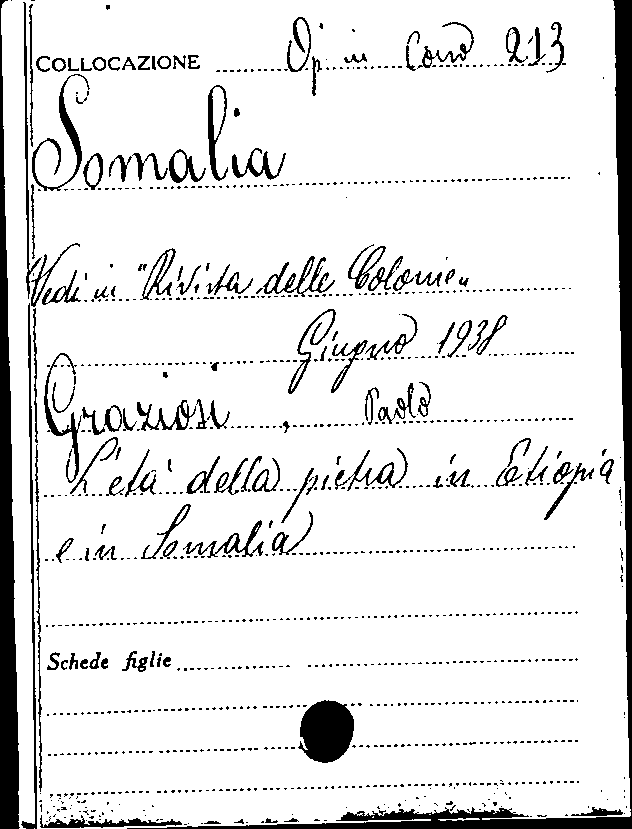 COLLOCAZIONE Op in Cons 213
Somalia
Vedi in "Rivista delle Colonie"
Giugno 1938
Graziosi, Paolo
L'età della pietra in Etiopia
e in Somalia
Schede figlie